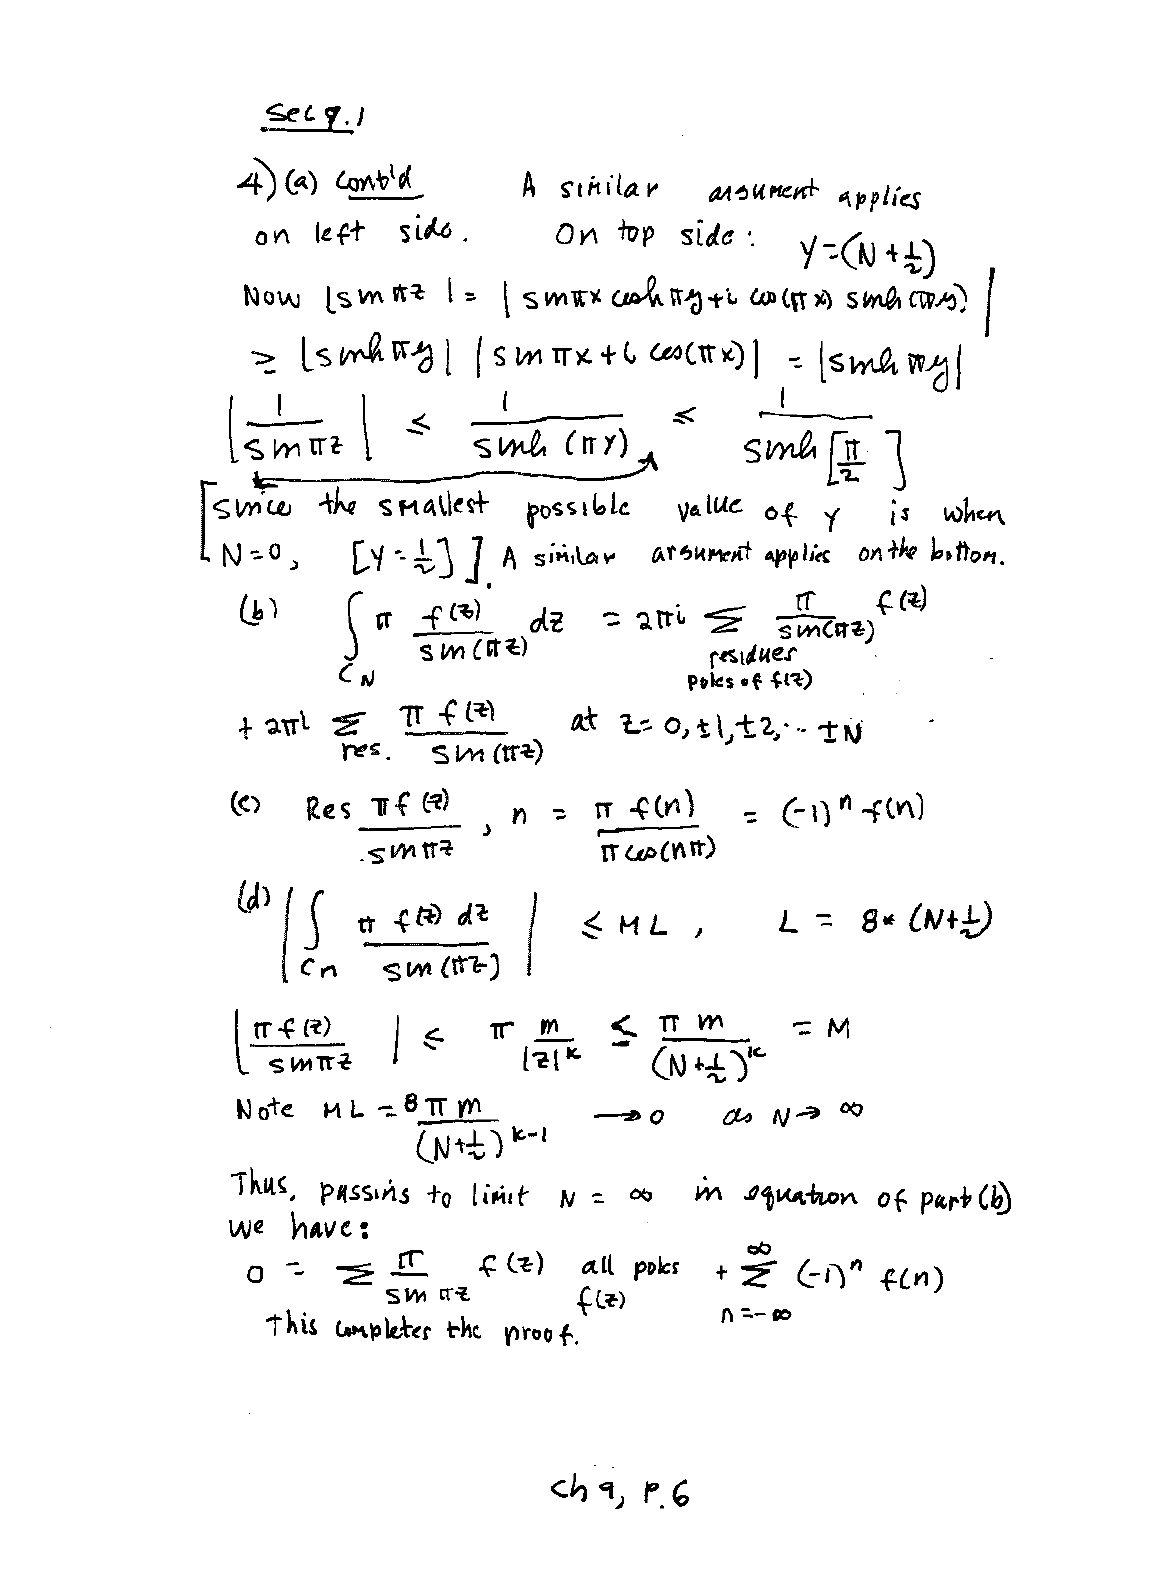 Sec 9.1
4) (a) cont'd A similar argument applies
on left side. On top side: y=(N+½)
Now |sin πz| = |sin πx cosh πy + i cos(πx) sinh(πy)|
≥ |sinh πy| |sin πx + i cos(πx)| = |sinh πy|
|1/sin πz| ≤ 1/sinh (πy) ≤ 1/sinh [π/2]
[Since the smallest possible value of y is when
N=0, [y=½]]. A similar argument applies on the bottom.
(b) ∫_{C_N} π f(z)/sin(πz) dz = 2πi Σ_{residues poles of f(z)} π/sin(πz) f(z)
+ 2πi Σ_{res.} π f(z)/sin(πz) at z=0,±1,±2,... ±N
(c) Res π f(z)/sin πz, n = π f(n)/π cos(nπ) = (-1)^n f(n)
(d) |∫_{Cn} π f(z) dz/sin(πz)| ≤ ML, L = 8*(N+½)
|π f(z)/sin πz| ≤ π m/|z|^k ≤ π m/(N+½)^k = M
Note ML = 8πm/(N+½)^{k-1} → 0 as N→∞
Thus, passing to limit N = ∞ in equation of part (b)
we have:
0 = Σ π/sin πz f(z) all poles f(z) + Σ_{n=-∞}^{∞} (-1)^n f(n)
This completes the proof.
Ch 9, P.6